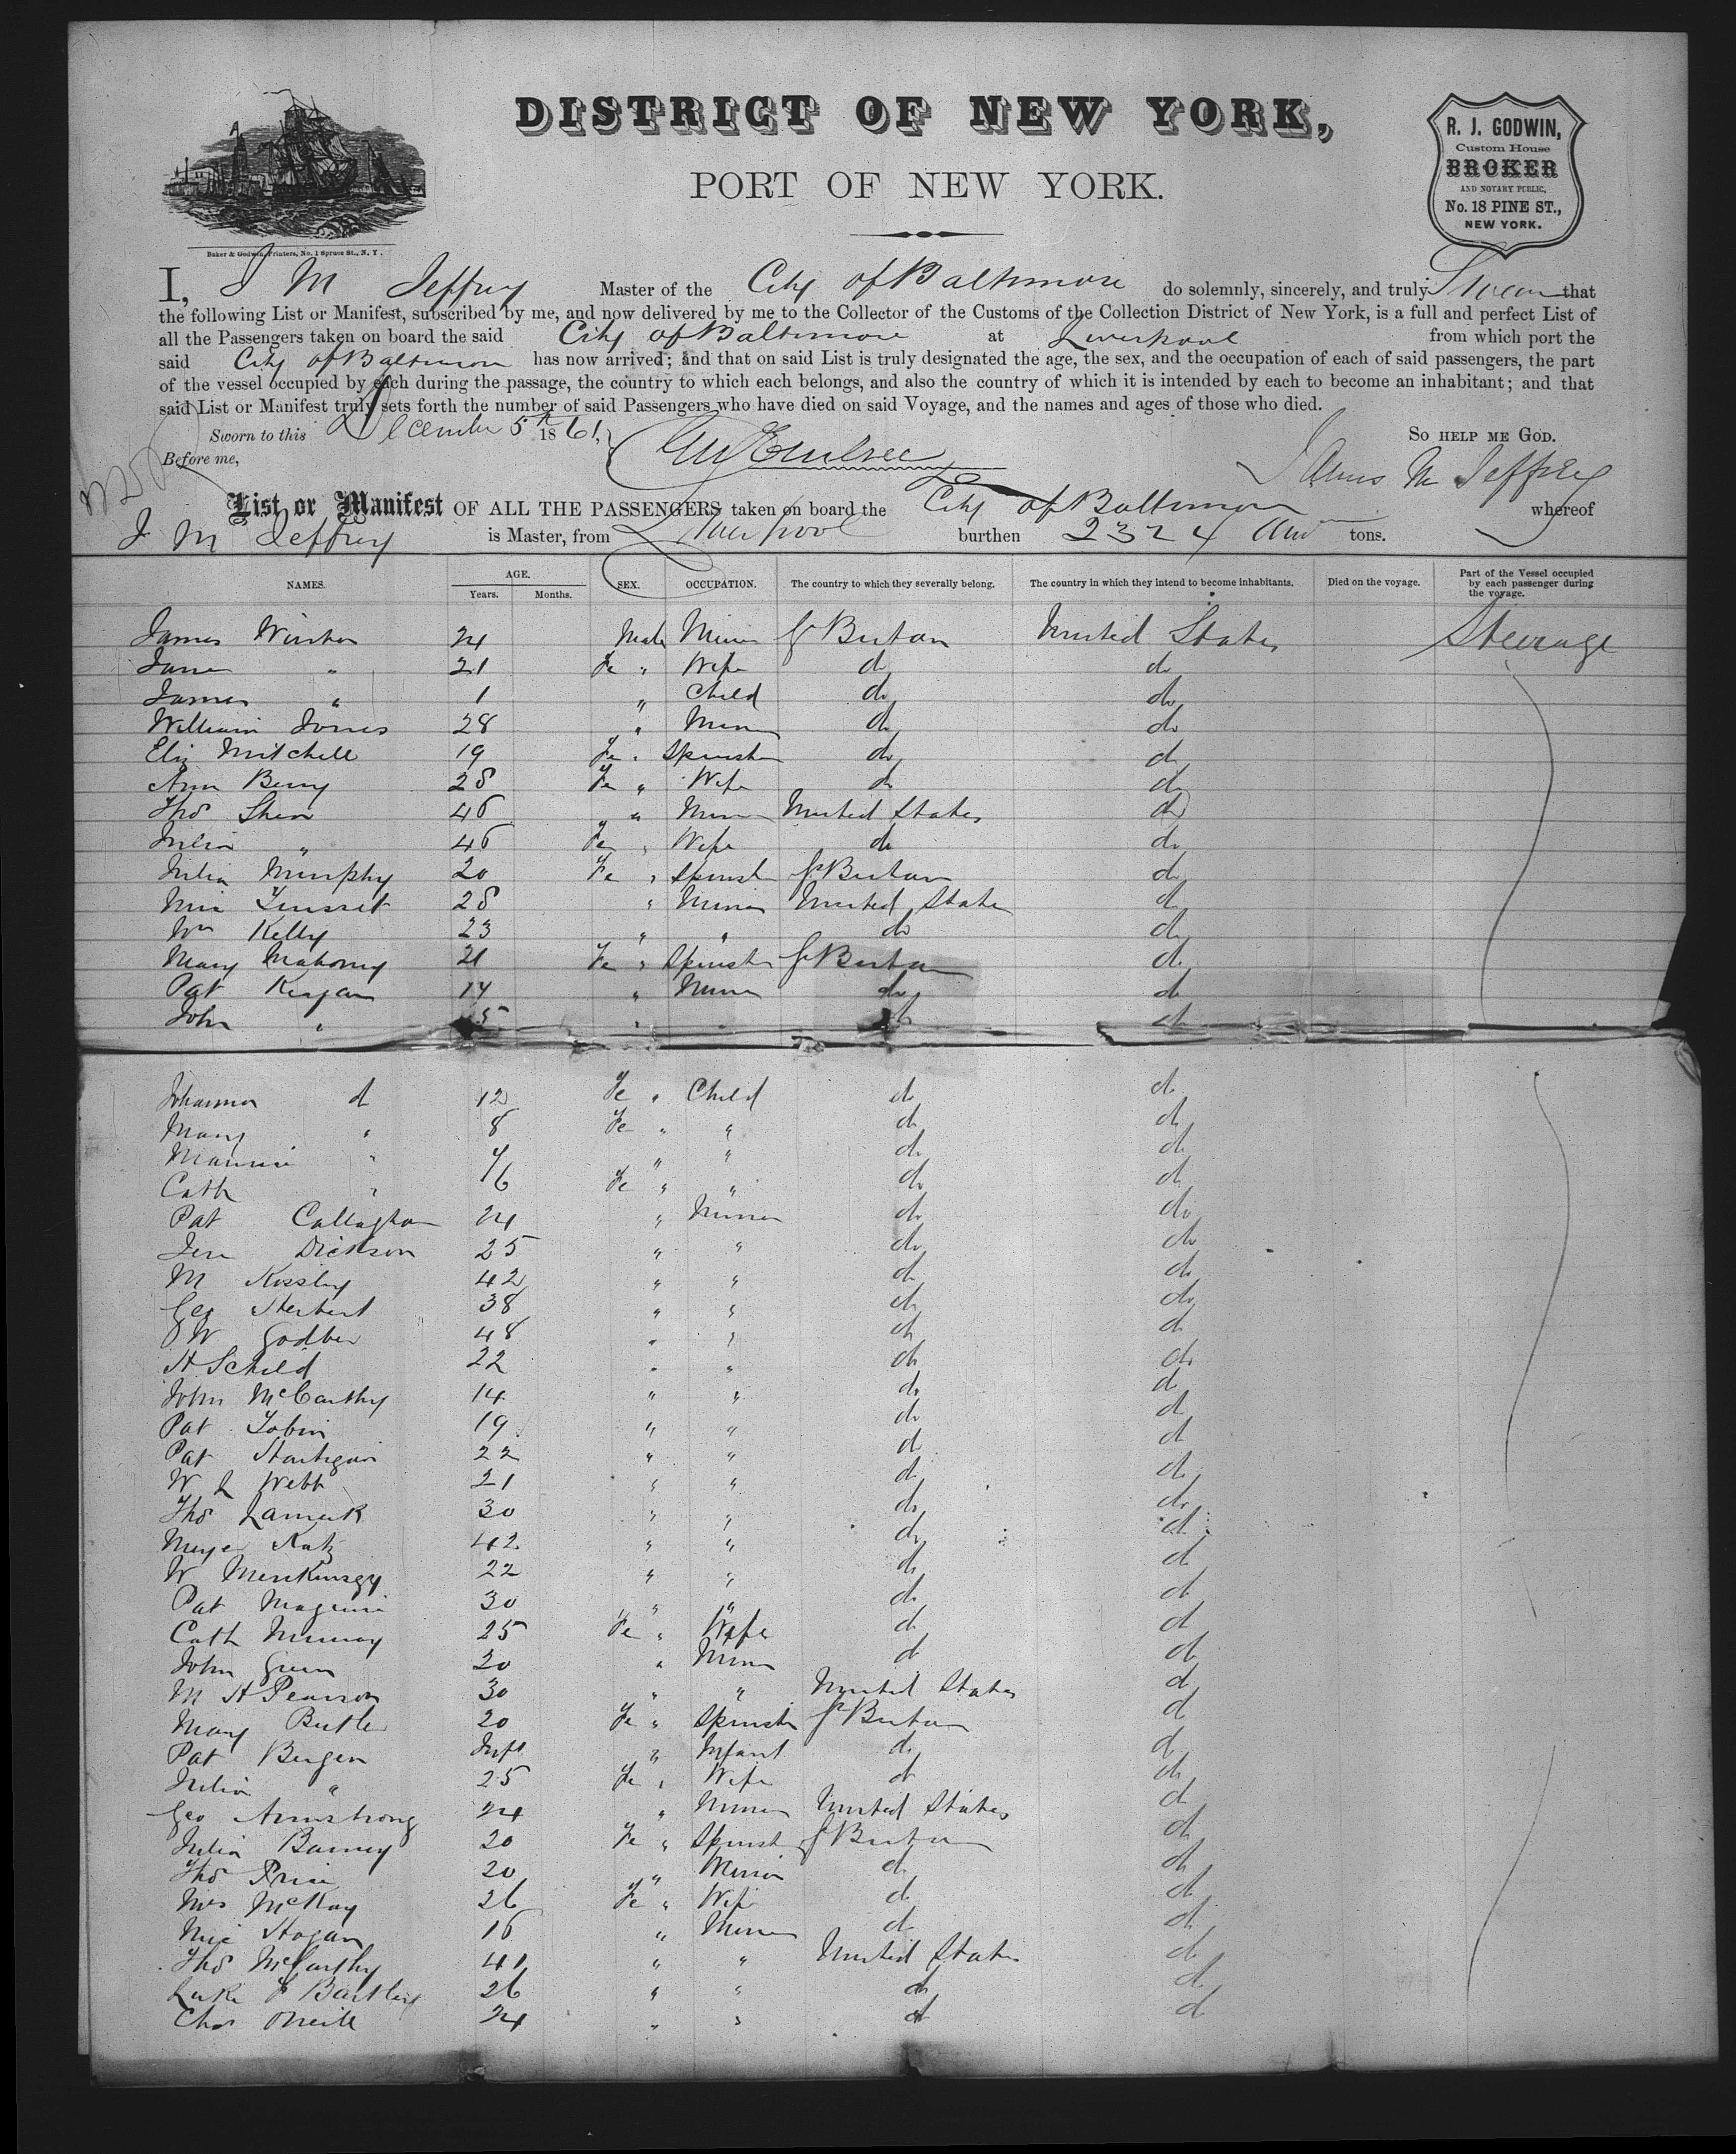 DISTRICT OF NEW YORK,
PORT OF NEW YORK.
R. J. GODWIN,
Custom House
BROKER
AND NOTARY PUBLIC,
No. 18 PINE ST.,
NEW YORK.
Baker & Godwin, Printers, No. 1 Spruce St., N. Y.
I, J M Jeffrey Master of the City of Baltimore do solemnly, sincerely, and truly Swear that
the following List or Manifest, subscribed by me, and now delivered by me to the Collector of the Customs of the Collection District of New York, is a full and perfect List of
all the Passengers taken on board the said City of Baltimore at Liverpool from which port the
said City of Baltimore has now arrived; and that on said List is truly designated the age, the sex, and the occupation of each of said passengers, the part
of the vessel occupied by each during the passage, the country to which each belongs, and also the country of which it is intended by each to become an inhabitant; and that
said List or Manifest truly sets forth the number of said Passengers who have died on said Voyage, and the names and ages of those who died.
Sworn to this December 5th 1861, SO HELP ME GOD.
Before me, James M Jeffrey
List or Manifest OF ALL THE PASSENGERS taken on board the City of Baltimore whereof
J M Jeffrey is Master, from Liverpool burthen 2324 tons.
NAMES. AGE. Years. Months. SEX. OCCUPATION. The country to which they severally belong. The country in which they intend to become inhabitants. Died on the voyage. Part of the Vessel occupied by each passenger during the voyage.
James Winter 24 Male Miner Gt Britain United States Steerage
Jane " 21 Fe " Wife do do
James " 1 " Child do do
William Jones 28 " Miner do do
Eliz Mitchell 19 Fe " Spinster do do
Ann Berry 28 Fe " Wife do do
Thos Shea 46 " Miner United States do
Julia " 46 Fe " Wife do do
Julia Murphy 20 Fe " Spinst Gt Britain do
28 " Miner United States do
Wm Kelly 23 " " do do
Mary Mahoney 21 Fe " Spinster Gt Britain do
Pat Keegan 14 " Miner do do
John " 15 " " do do
Johanna d 12 Fe " Child do do
Mary " 8 Fe " " do do
Maurice " 4 " " do do
Cath " 6 Fe " " do do
Pat Callaghan 24 " Miner do do
Jere Dickson 25 " " do do
M 42 " " do do
Geo Herbert 38 " " do do
W Godber 48 " " do do
H Schild 22 " " do do
John McCarthy 14 " " do do
Pat Tobin 19 " " do do
Pat Hartigan 22 " " do do
W L Webb 21 " " do do
Thos 30 " " do do
Meyer Katz 42 " " do do
W 22 " " do do
Pat Maguire 30 " " do do
Cath Murray 25 Fe " Wife do do
John Green 20 " Miner do do
M H Pearson 30 " " United States do
Mary Butler 20 Fe " Spinster Gt Britain do
Pat Bergen Inft " Infant do do
Julia " 25 Fe " Wife do do
Geo Armstrong 24 " Miner United States do
Julia Barney 20 Fe " Spinst Gt Britain do
Thos Price 20 " Miner do do
Mrs McKay 26 Fe " Wife do do
Mic Hogan 16 " Miner do do
Thos McCarthy 41 " " United States do
Luke F Bartley 26 " " do do
Chas ONeill 24 " " do do